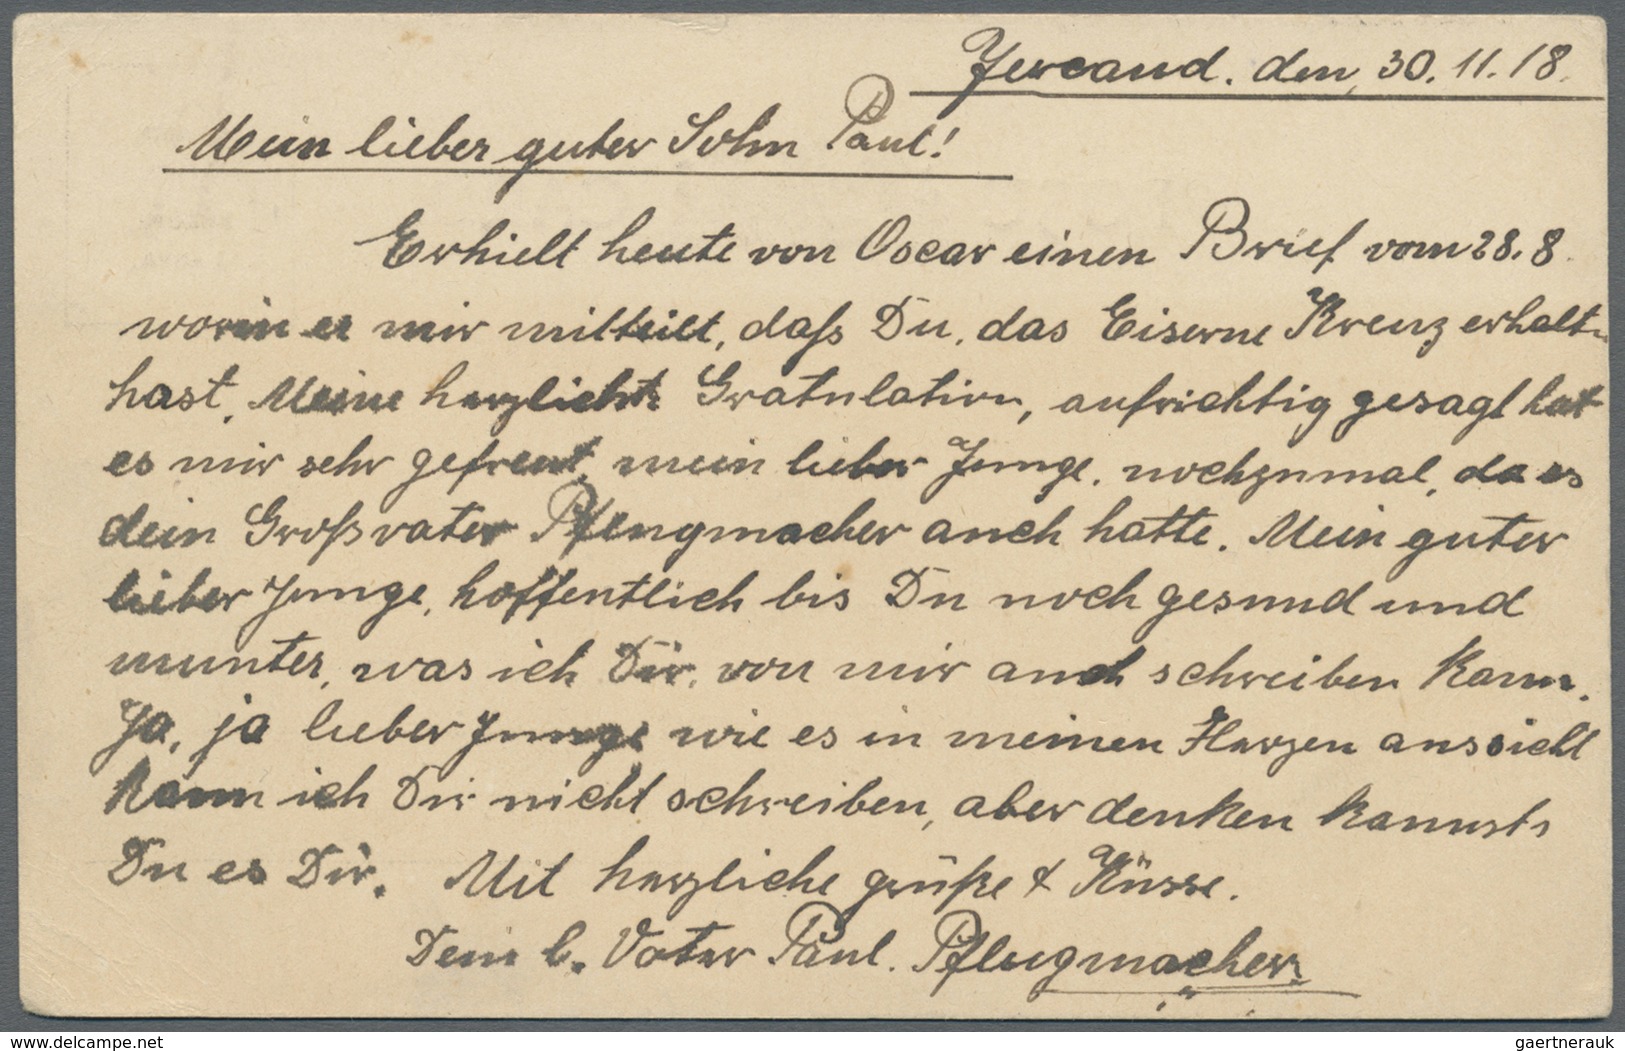 Yercaud. den, 30.11.18.
Mein lieber guter Sohn Paul!
Erhielt heute von Oscar einen Brief vom 28.8.
worin er mir mitteilt, daß Du, das Eiserne Kreuz erhalt
hast. Meine herzlichste Gratulation, aufrichtig gesagt hat
es mir sehr gefreut, mein lieber Junge, nochzumal, da es
dein Großvater Pflugmacher auch hatte. Mein guter
lieber Junge, hoffentlich bis Du noch gesund und
munter, was ich Dir, von mir auch schreiben kann.
Ja, ja lieber Junge wie es in meinen Herzen aussieht
kann ich Dir nicht schreiben, aber denken kannst
Du es Dir. Mit herzliche grüße & Küsse.
Dein l. Vater Paul. Pflugmacher
www.delcampe.net
gaertnerauk